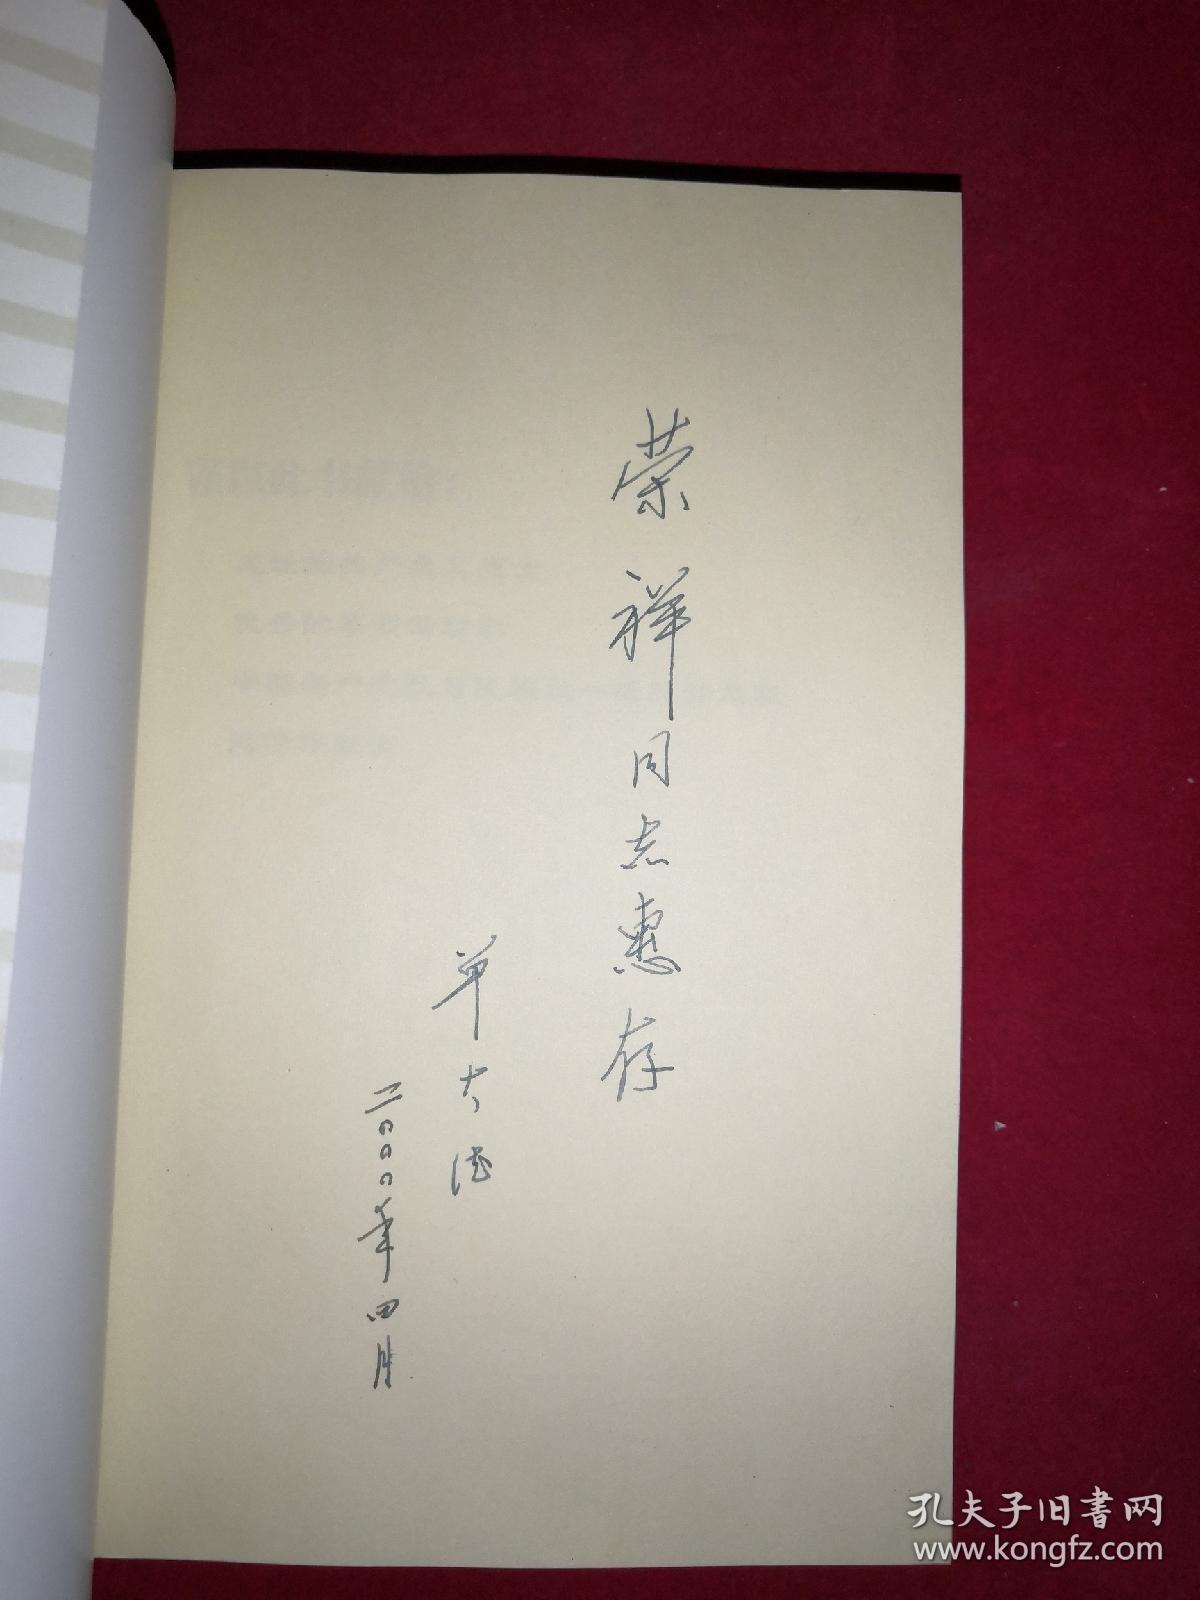 荣祥同志惠存
单大德
二〇〇〇年四月
孔夫子旧书网
www.kongfz.com